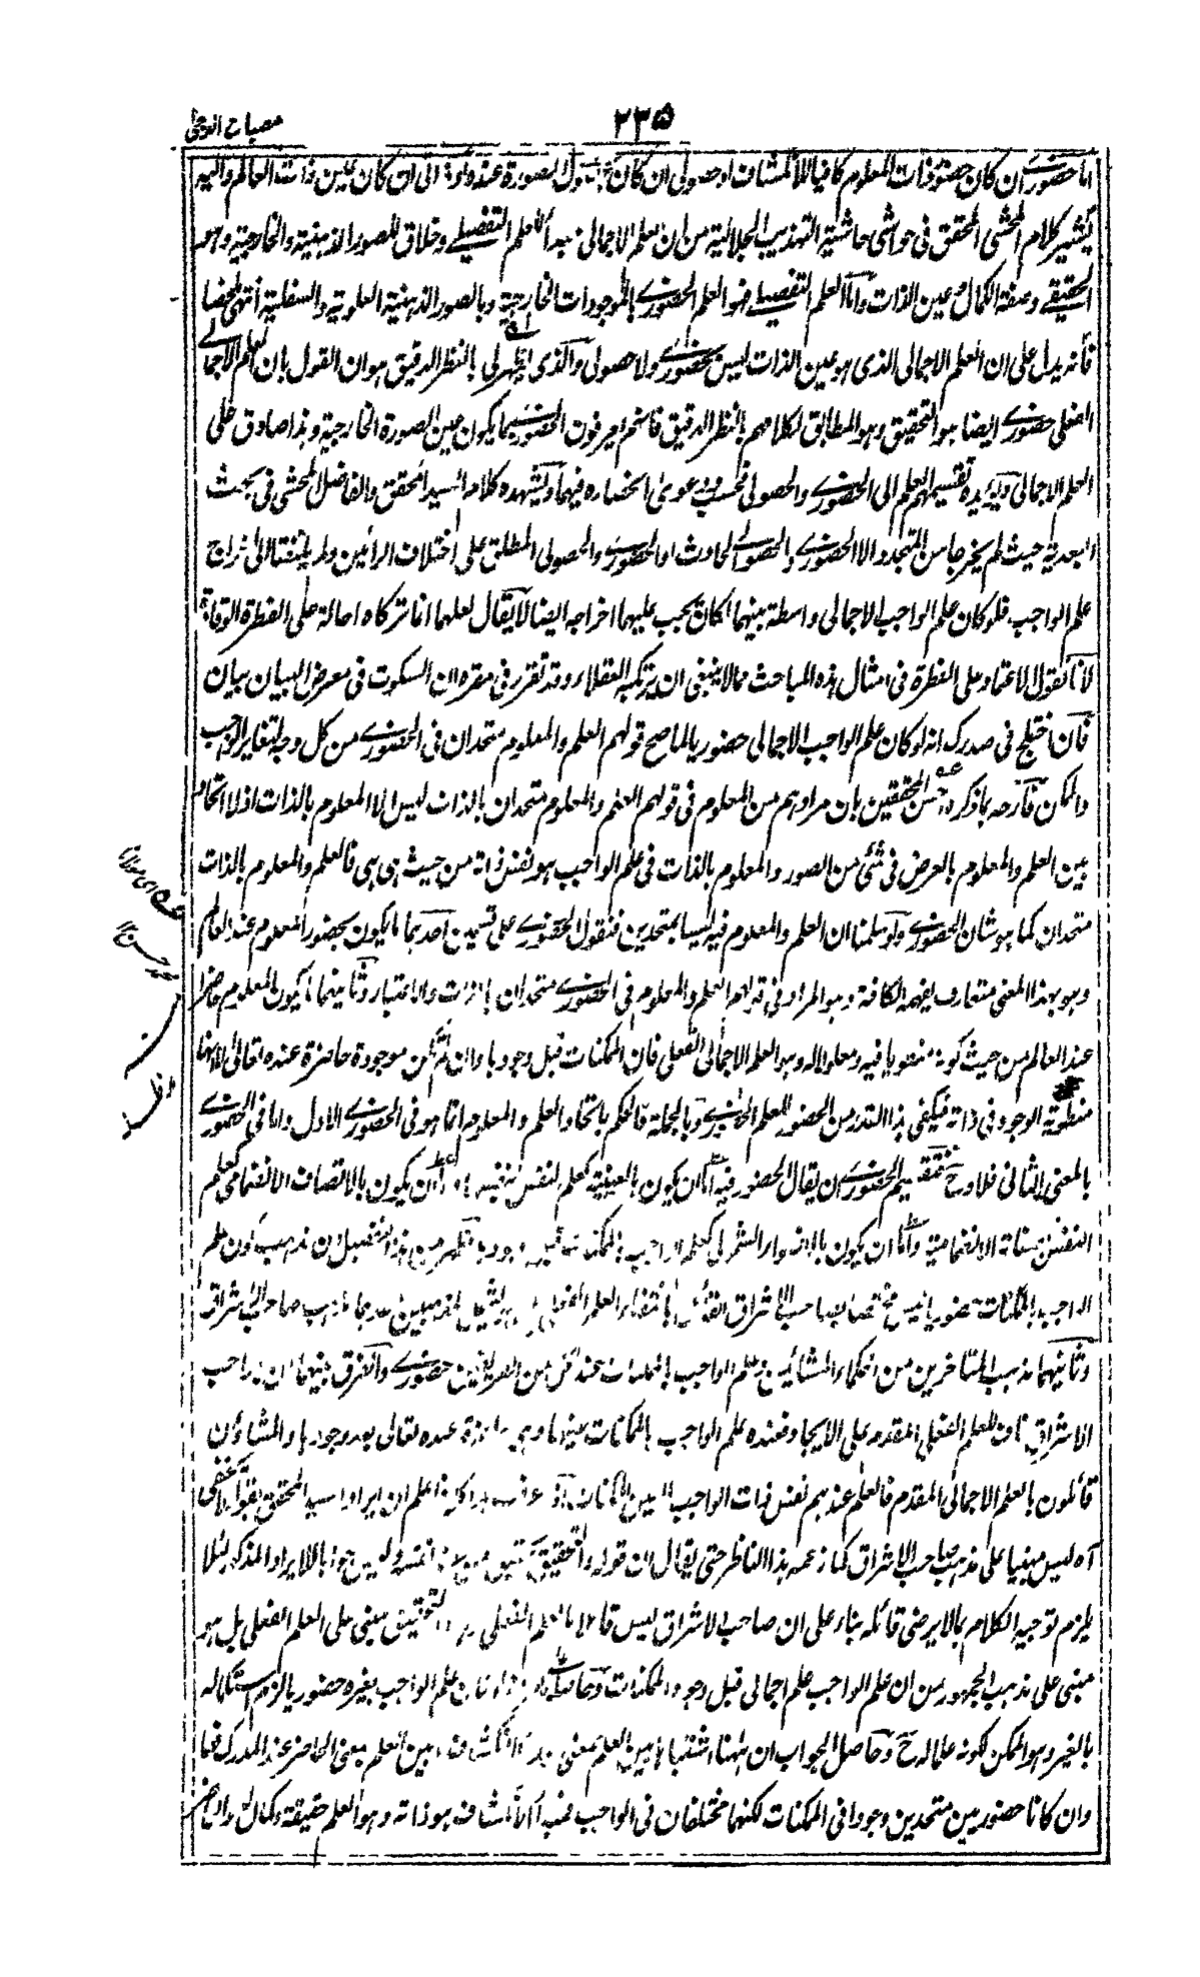 ٢٣٥
مصباح الدجى
اما حضوري ان كان حضور ذات المعلوم كافيا للانكشاف او حصولي ان كان بحصول الصورة عنده او الى ان كان عين ذات العالم واليه
يشير كلام المحشى المحقق فى حواشى حاشية التهذيب الجلالية من ان العلم الاجمالى مبدأ للعلم التفصيلى وخلاق للصور الذهنية والخارجية وهو
الحقيقى وصفة الكمال وعين الذات واما العلم التفصيلى فهو العلم الحضورى بالموجودات الخارجية وبالصور الذهنية العلوية والسفلية انتهى ملخصا
فانه يدل على ان العلم الاجمالى الذى هو عين الذات ليس بحضورى ولا حصولى والذى يظهر لى بالنظر الدقيق هو ان القول بان العلم الاجمالى
الفعلى حضورى ايضا هو التحقيق وهو المطابق لكلامهم بالنظر الدقيق فانهم يعرفون الحضورى بما يكون عين الصورة الخارجية وهذا صادق على
العلم الاجمالى ويؤيده تقسيمهم العلم الى الحضورى والحصولى فحسب ودعوى انحصاره فيهما ويشهده كلام السيد المحقق والفاضل المحشى فى بحث
البعدية حيث لم يخرجا من المتجدد الا الحضورى والحصولى الحادث او الحضورى والحصولى المطلق على اختلاف الرائين ولم يلتفتا الى اخراج
علم الواجب فلو كان علم الواجب الاجمالى واسطة بينهما لكان يجب عليهما اخراجه ايضا لا يقال لعلهما انما تركاه احالة على الفطرة الوقادة
لانا نقول الاعتماد على الفطرة فى امثال هذه المباحث مما لا ينبغى ان يرتكبه العقلاء وقد تقرر فى مقره ان السكوت فى معرض البيان بيان
فان اختلج فى صدرك انه لو كان علم الواجب الاجمالى حضوريا لما صح قولهم العلم والمعلوم متحدان فى الحضورى من كل وجه لتغاير الواجب
والممكن فازحه بما ذكره احسن المحققين بان مرادهم من المعلوم فى قولهم العلم والمعلوم متحدان بالذات ليس الا المعلوم بالذات اذ لا اتحاد
بين العلم والمعلوم بالعرض فى شئ من الصور والمعلوم بالذات فى علم الواجب هو نفس ذاته من حيث هى هى فالعلم والمعلوم بالذات
متحدان كما هو شان الحضورى ولو سلمنا ان العلم والمعلوم فيه ليسا بمتحدين فنقول الحضورى على قسمين احدهما ما يكون بحضور المعلوم عند العالم
وهو بهذا المعنى متعارف يفهمه الكافة وهو المراد فى قولهم العلم والمعلوم فى الحضورى متحدان بالذات والاعتبار وثانيهما ما يكون المعلوم حاضرا
عند العالم من حيث كونه منطويا فيه ومعلولا له وهو العلم الاجمالى الفعلى فان الممكنات قبل وجودها وان لم تكن موجودة حاضرة عنده تعالى الا انها
منطوية الوجود فى ذاته فيكفى هذا القدر من الحضور للعلم الحضورى وبالجملة فالحكم باتحاد العلم والمعلوم انما هو فى الحضورى الاول واما فى الحضورى
بالمعنى الثانى فلا وح تقسيم الحضورى ان يقال الحضور فيه اما ان يكون بالعينية كعلم النفس بنفسها واما ان يكون بالاتصاف الانضمامى كعلم
النفس بصفاته الانضمامية واما ان يكون بالانطواء الشرى كعلم الواجب بالممكنات قبل وجودها فظهر من هذا التفصيل ان مذهب كون علم
الواجب بالممكنات حضوريا ليس مختصا بصاحب الاشراق القائل بانتفاء العلم الفعلى بل يشتمل المذهبين احدهما مذهب صاحب الاشراق
وثانيهما مذهب المتاخرين من الحكماء المشائين فعلم الواجب بالممكنات عند كل من الفريقين حضورى والفرق بينهما ان صاحب
الاشراق ناف للعلم الفعلى المقدم على الايجاد فعنده علم الواجب بالممكنات عينها وهى حاضرة عنده تعالى بعد وجودها والمشاؤن
قائلون بالعلم الاجمالى المقدم فالعلم عندهم نفس ذات الواجب لا عين الممكنات اذا عرفت هذا كله فاعلم ان ايراد السيد المحقق بقوله لا يخفى
آه ليس مبنيا على مذهب صاحب الاشراق كما زعمه هذا الناظر حتى يقال ان قوله والتحقيق وليس جوابا للايراد المذكور لئلا
يلزم توجيه الكلام بما لا يرضى قائله بناء على ان صاحب الاشراق ليس قائلا بالعلم الفعلى والتحقيق مبنى على العلم الفعلى بل هو
مبنى على مذهب الجمهور من ان علم الواجب علم اجمالى قبل وجود الممكنات وحاصله انه لو كان علم الواجب بغيره حضوريا لزم استكماله
بالغير وهو الممكن لكونه علما له ح وحاصل الجواب ان ههنا اشتباها بين العلم بمعنى مبدأ الانكشاف وبين العلم بمعنى الحاضر عند المدرك فهما
وان كانا حضوريين متحدين وجودا فى الممكنات لكنهما مختلفان فى الواجب فمبدأ الانكشاف هو ذاته وهو العلم حقيقة وكمال له والحاضر